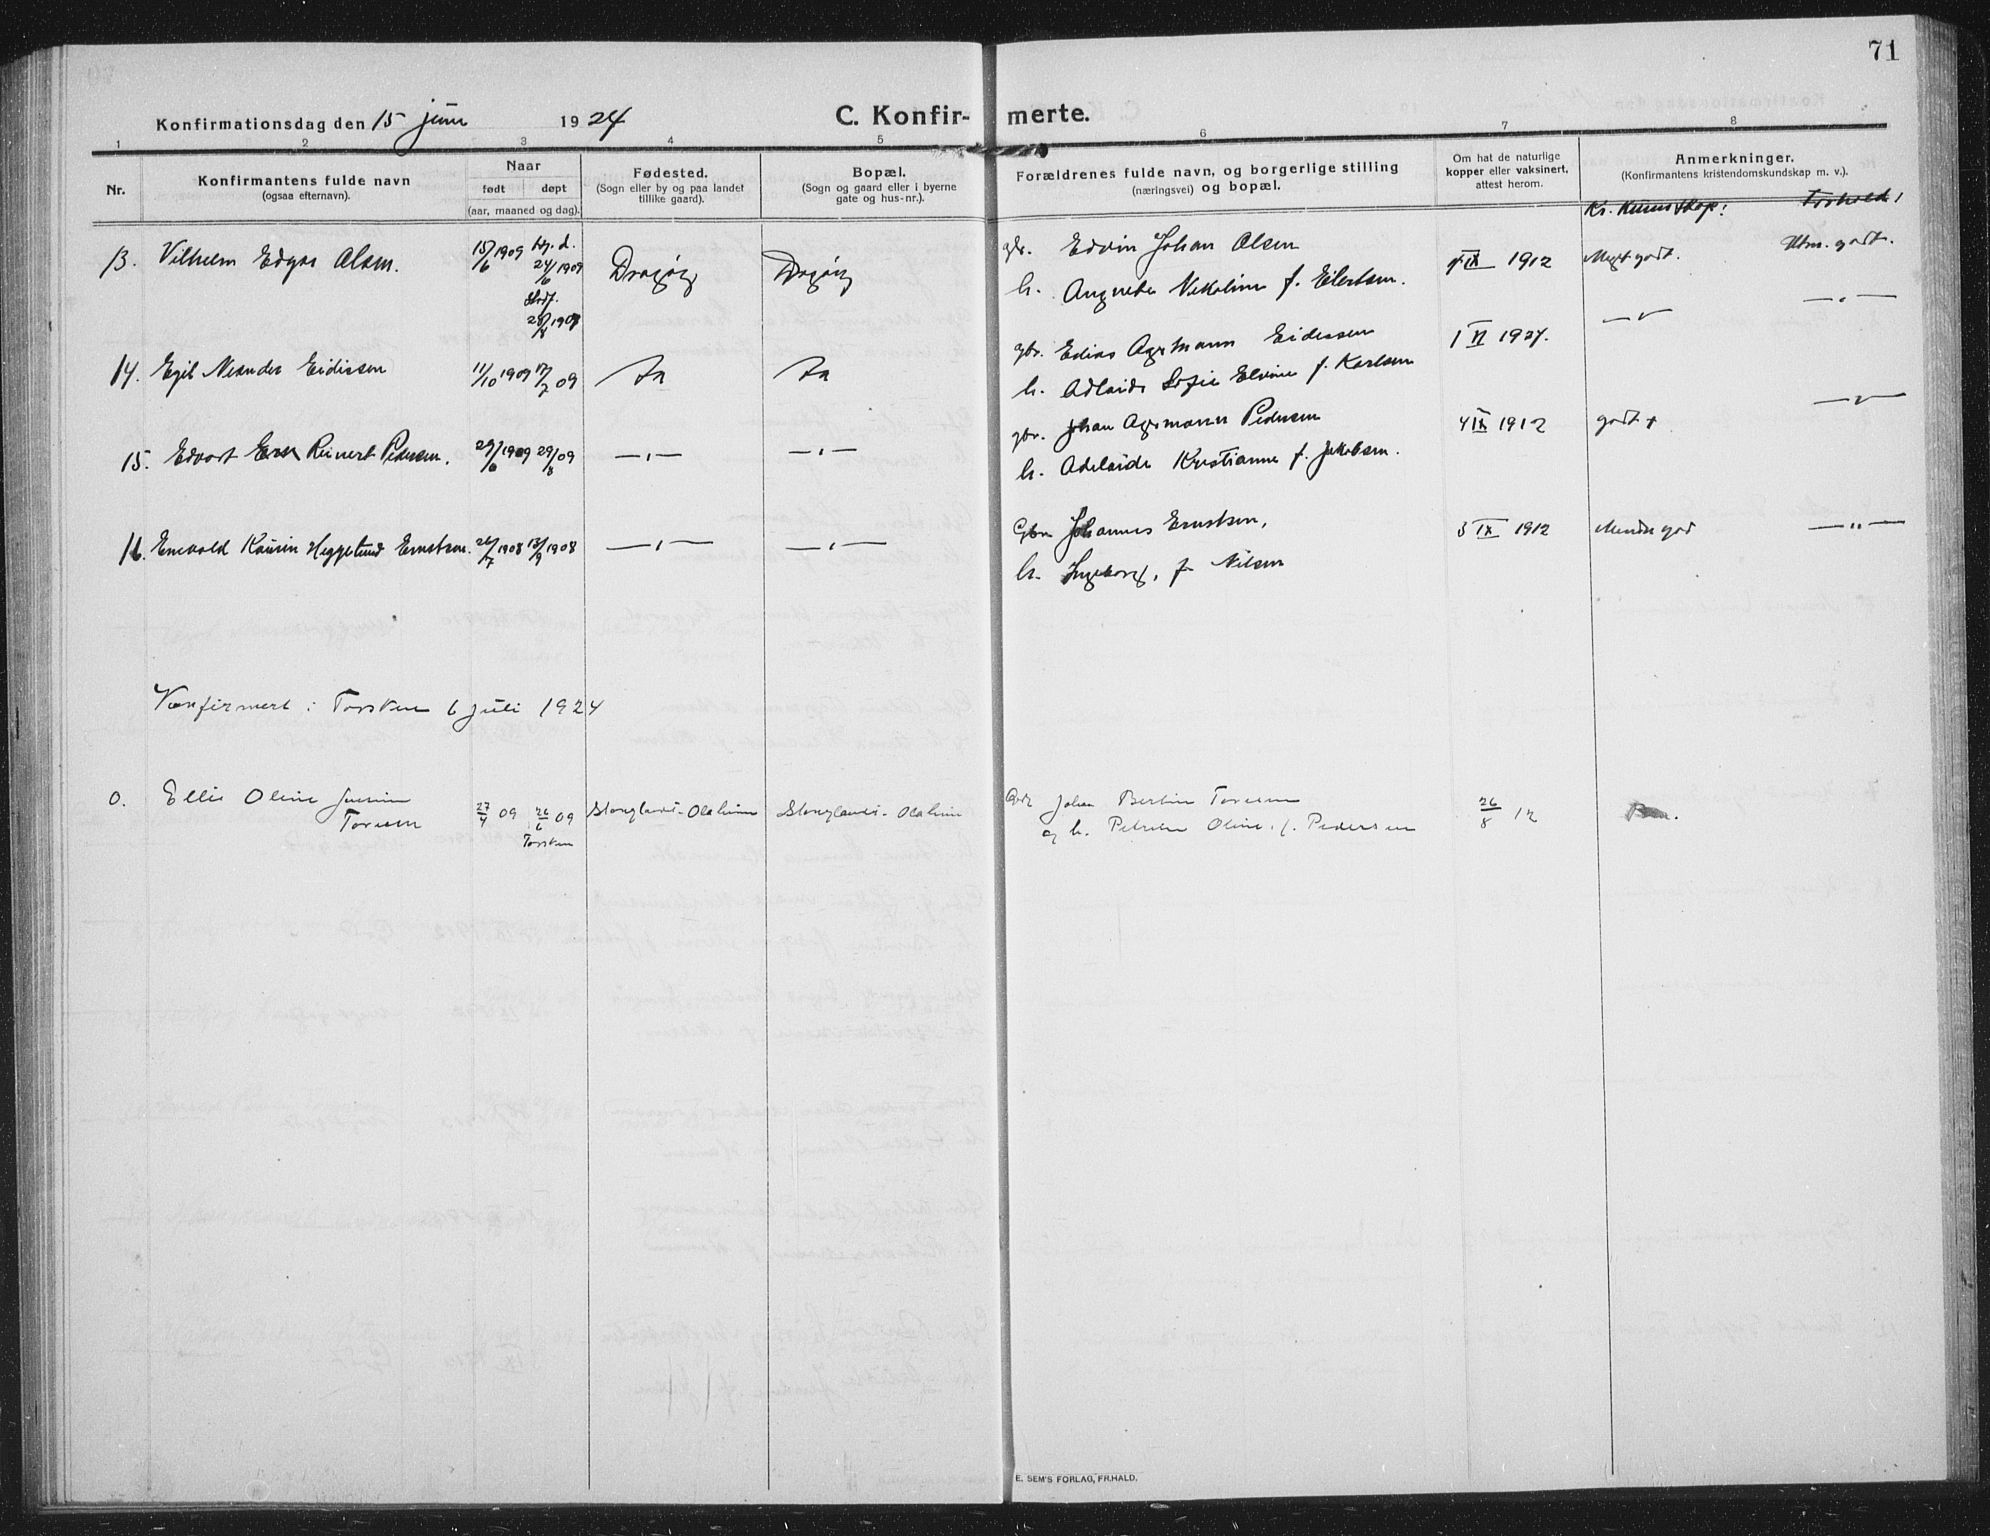 71
Konfirmationsdag den 15 juni 1924
C. Konfir- merte.
1 2 3 4 5 6 7 8
Nr.
Konfirmantens fulde navn
(ogsaa efternavn).
Naar
født døpt
(aar, maaned og dag).
Fødested.
(Sogn eller by og paa landet
tillike gaard).
Bopæl.
(Sogn og gaard eller i byerne
gate og hus-nr.).
Forældrenes fulde navn, og borgerlige stilling
(næringsvei) og bopæl.
Om hat de naturlige
kopper eller vaksinert,
attest herom.
Anmerkninger.
(Konfirmantens kristendomskundskap m. v.).
Kr. Kunnskap: Forhold
13. Vilhelm Edgar Olsen. 15/6 1909 hj. d. 24/6 1909 Stadf. Drøjøy Drøjøy
gbr. Edvin Johan Olsen IX 1912 Meget godt. Utm. godt.
h. Angneta Nikoline f. Eilertsen.
14. Egil Neander Eidissen 11/10 1909 09 Aa Aa
gbr. Edias Agrmann Eidissen 1 VI 1924. — " — — " —
h. Adlaide Sofie Elvine f. Karlsen
15. Edvart Reinert Pedersen. 29/6 1909 29/8 09 — " — — " —
gbr. Johan Agrmann Pedersen 4 IX 1912 godt + — " —
h. Adelaide Kristianne f. Jakobsen.
16. Enevold Kaurin Heggelund Ernstsen. 26/7 1908 13/9 1908 — " — — " —
Gbr. Johannes Ernstsen, 3 IX 1912 Mindre god — " —
h. Ingeborg, f. Nilsen
Konfirmert i Torsken 6 juli 1924
0. Ellie Oline Jensine
Torsen 27/4 09 26/6 09 Stonglands - Olaheim Stonglands - Olaheim
Torsken
Gbr Johan Bertin Torsen 26/8 12
og h. Petrine Oline, f. Pedersen
E. SEM'S FORLAG, FR.HALD.